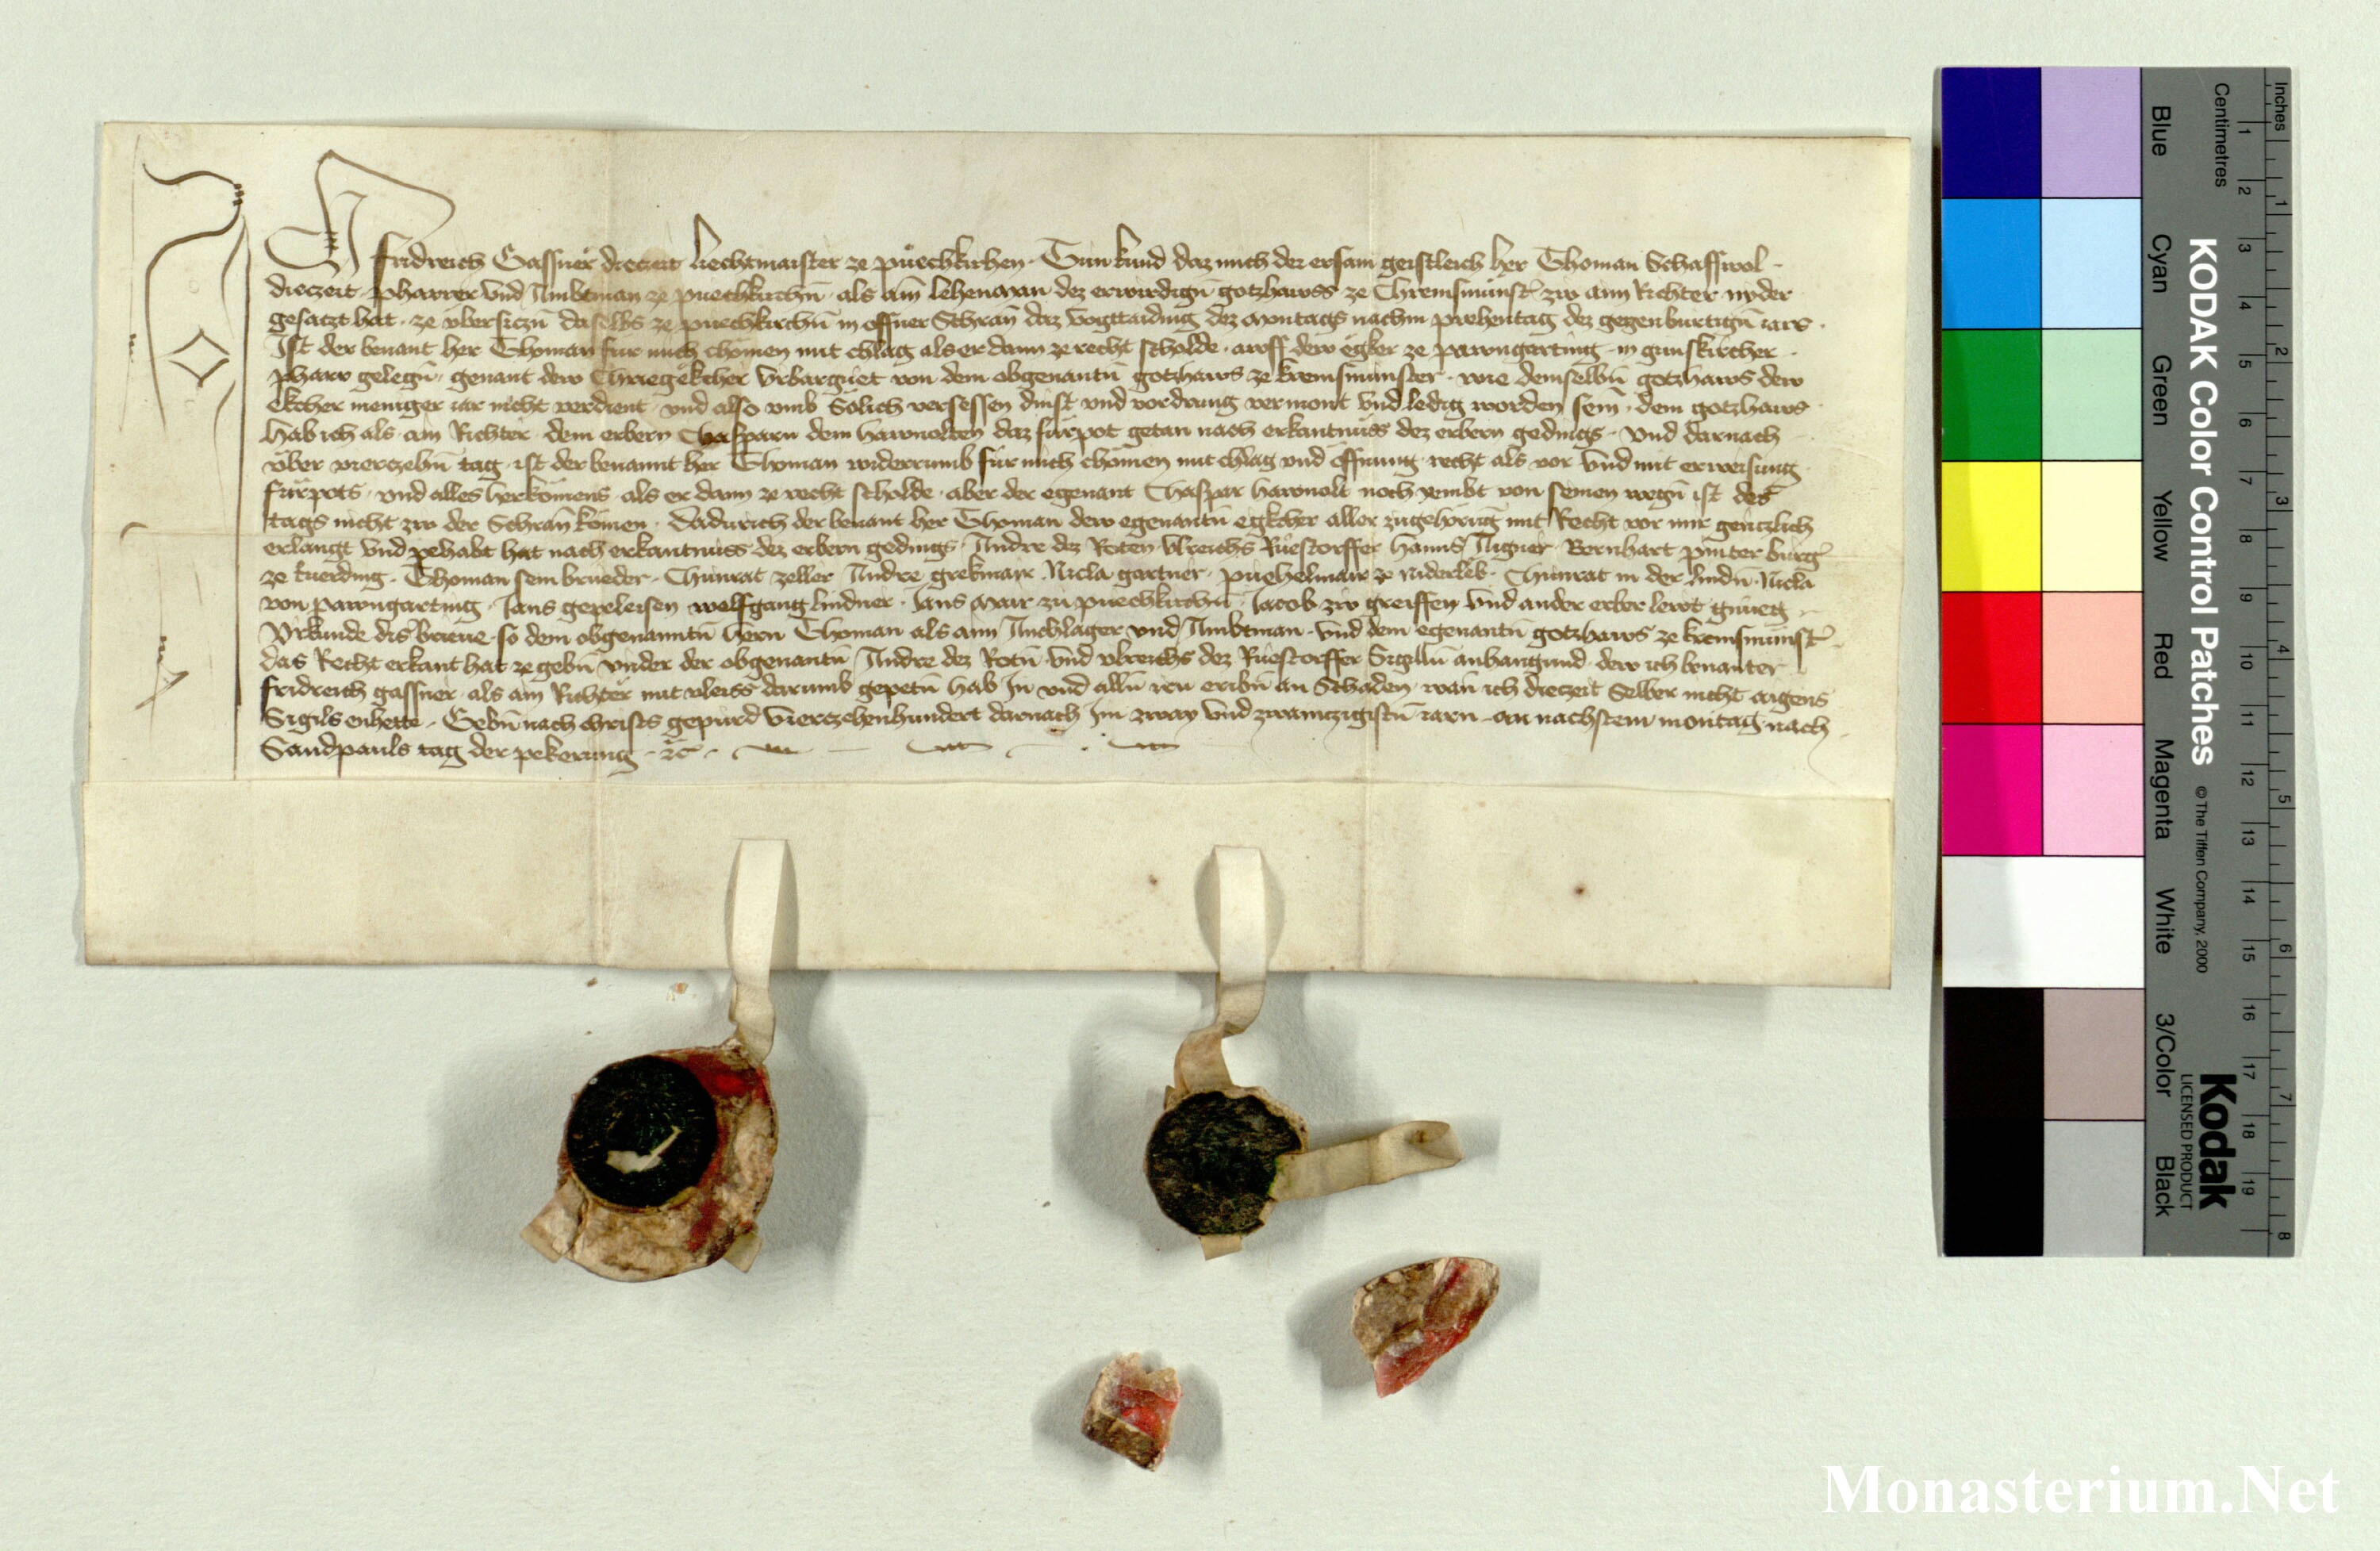 Ich Fridreich Gassner dieczeit Liechtmaister ze puechkirhen · Tun kund daz mich der ersam geistleich her Thoman Schaffwol
dieczeit pharrer vnd Ambtman ze puechkirchn̄ als ain lehenman dez erwirdign̄ gotzhawss ze Chremsmünst̄ zw ainn Richter nyder
gesaczt hat · ze vbersiczn̄ daselbs ze puechkirchn̄ in offner Schran̄ daz vogttaiding dez montags nachm prehentag dez gegenburtign̄ iars ·
Ist der benant her Thoman fur mich chömen mit chlag als er dann ze recht scholde · awff dew egker ze pawngarting in gunskircher
pharr gelegn̄ · genant dew Chriegëkcher vrbarguet von dem obgenantn̄ gotzhaws ze kremsmunster · wie demselbn̄ gotzhaws dew
ekcher meniger iar nicht verdient · vnd also vmb Solich versessen dinst vnd vordrung vermont vnd ledig worden sein̄ · dem gotzhaws ·
Hab ich als ain Richter dem erbern Chasparn dem hawnolten daz fürpot getan nach erkantnüss dez erbern gedings · vnd darnach
vber vierczehn̄ tag · ist der benannt her Thoman widerrumb für mich chömen mit chlag vnd öffnung recht als vor vnd mit erweisung
fürpots · vnd alles herkömens als er dann ze recht scholde · aber der egenant Chaspar hawnolt noch yembt von seinen wegn̄ ist des
tags nicht zw der Schran̄ kömen · Dadurich der benant her Thoman dew egenantn̄ egkcher aller zugehörūg mit Recht vor mir genczlich
erlangt vnd pehabt hat nach erkantnuss dez erbern gedings · Andre dez Roten vlreichs Ruestorffer Hanns Aigner · Bernhart pinter burḡ
ze Euerding · Thoman sein brueder · Chunrat zeller Andre grekmair Nicla gartner · puehelmair ze Niderleb · Chunrat in der lindn̄ · Nicla
von pawngarting · Jans gepeleisen wolfgang lindner · Jans Mair zu puechkirchn̄ · Jacob zw greiffen vnd ander erber lewt gnueg ·
Vrkunde dis brieue · so dem obgenanntn̄ hern Thoman als ainn Anchlager vnd Ambtman · vnd dem egenantn̄ gotzhaws ze kremsmunst̄
das Recht erkant hat ze gebn̄ vnder der obgenantn̄ Andre dez Rotn̄ vnd vlreichs dez Ruestorffer Sigilln̄ anhangund · dew ich benanter
fridreich gassner · als ain Richter mit vleiss darumb gepetn̄ hab In vnd alln̄ irn eribn̄ an Schaden · wan̄ ich dieczeit Selber nicht aigens
Sigils enhette · Gebn̄ nach christs gepurd vierczehenhundert darnach Im zway vnd zwainczigistn̄ iarn · am nachstem montag nach
Sandpauls tag der pekerung · ꝛc̄ ·
KODAK Color Control Patches
© The Tiffen Company, 2000
Kodak
LICENSED PRODUCT
Blue Cyan Green Yellow Red Magenta White 3/Color Black
Centimetres
1 2 3 4 5 6 7 8 9 10 11 12 13 14 15 16 17 18 19
Inches
1 2 3 4 5 6 7 8
Monasterium.Net